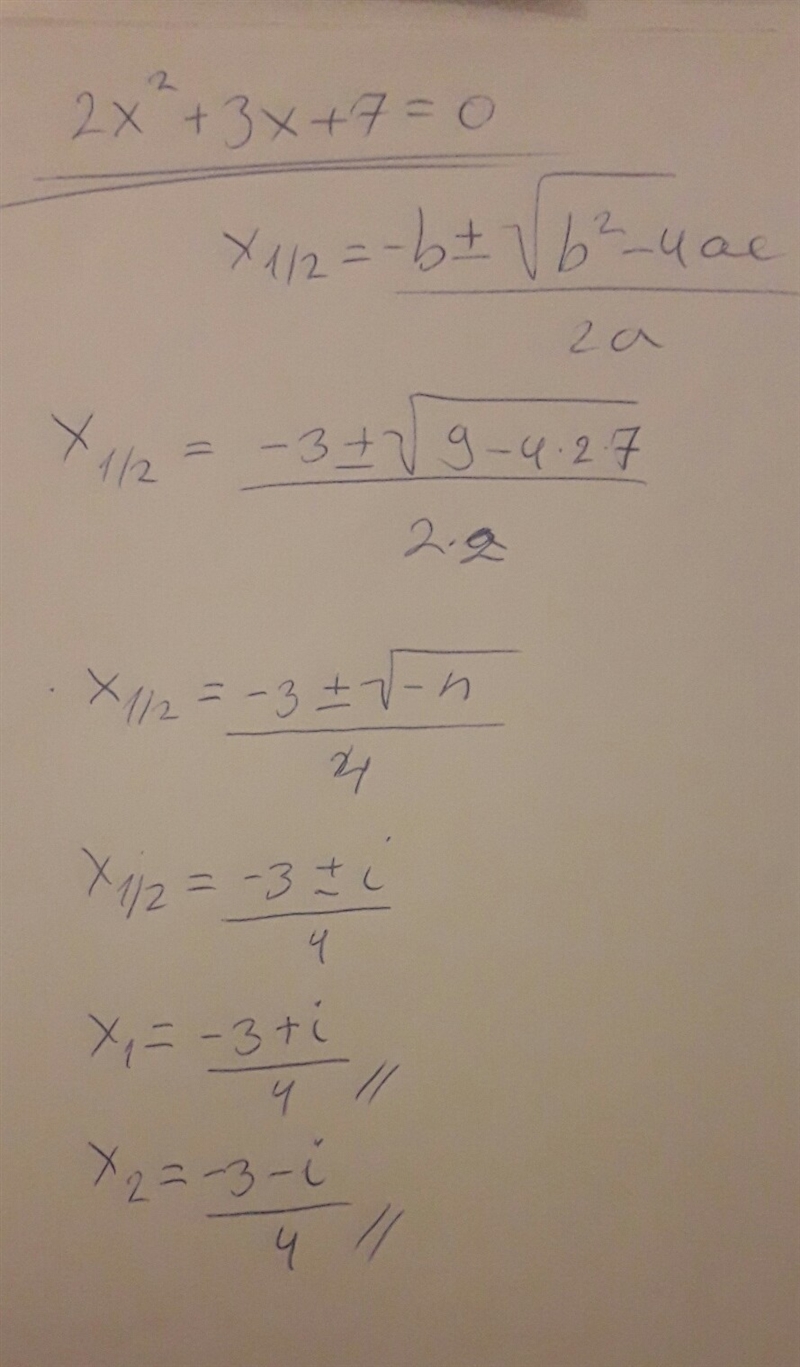 2x² + 3x + 7 = 0
x1/2 = -b ± √b² - 4ac
2a
x1/2 = -3 ± √9 - 4·2·7
2·2
x1/2 = -3 ± √-n
4
x1/2 = -3 ± i
4
x1 = -3 + i
4 //
x2 = -3 - i
4 //